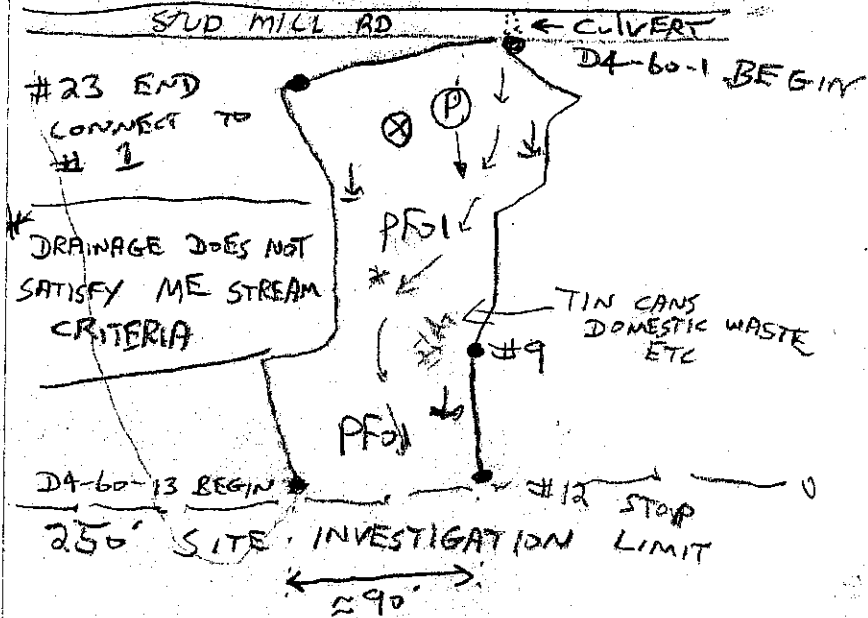 STUD MILL RD
← CULVERT
D4-60-1 BEGIN
#23 END
CONNECT TO
# 1
P
X
PFO1
* DRAINAGE DOES NOT
SATISFY ME STREAM
CRITERIA
*
TIN CANS
DOMESTIC WASTE
ETC
#9
PFO1
D4-60-13 BEGIN
#12 STOP
250' SITE INVESTIGATION LIMIT
≈90'